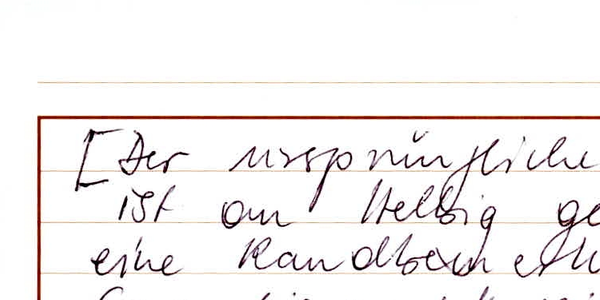 [Der ursprüngliche
ist an Helbig ge
eine Randbemerk